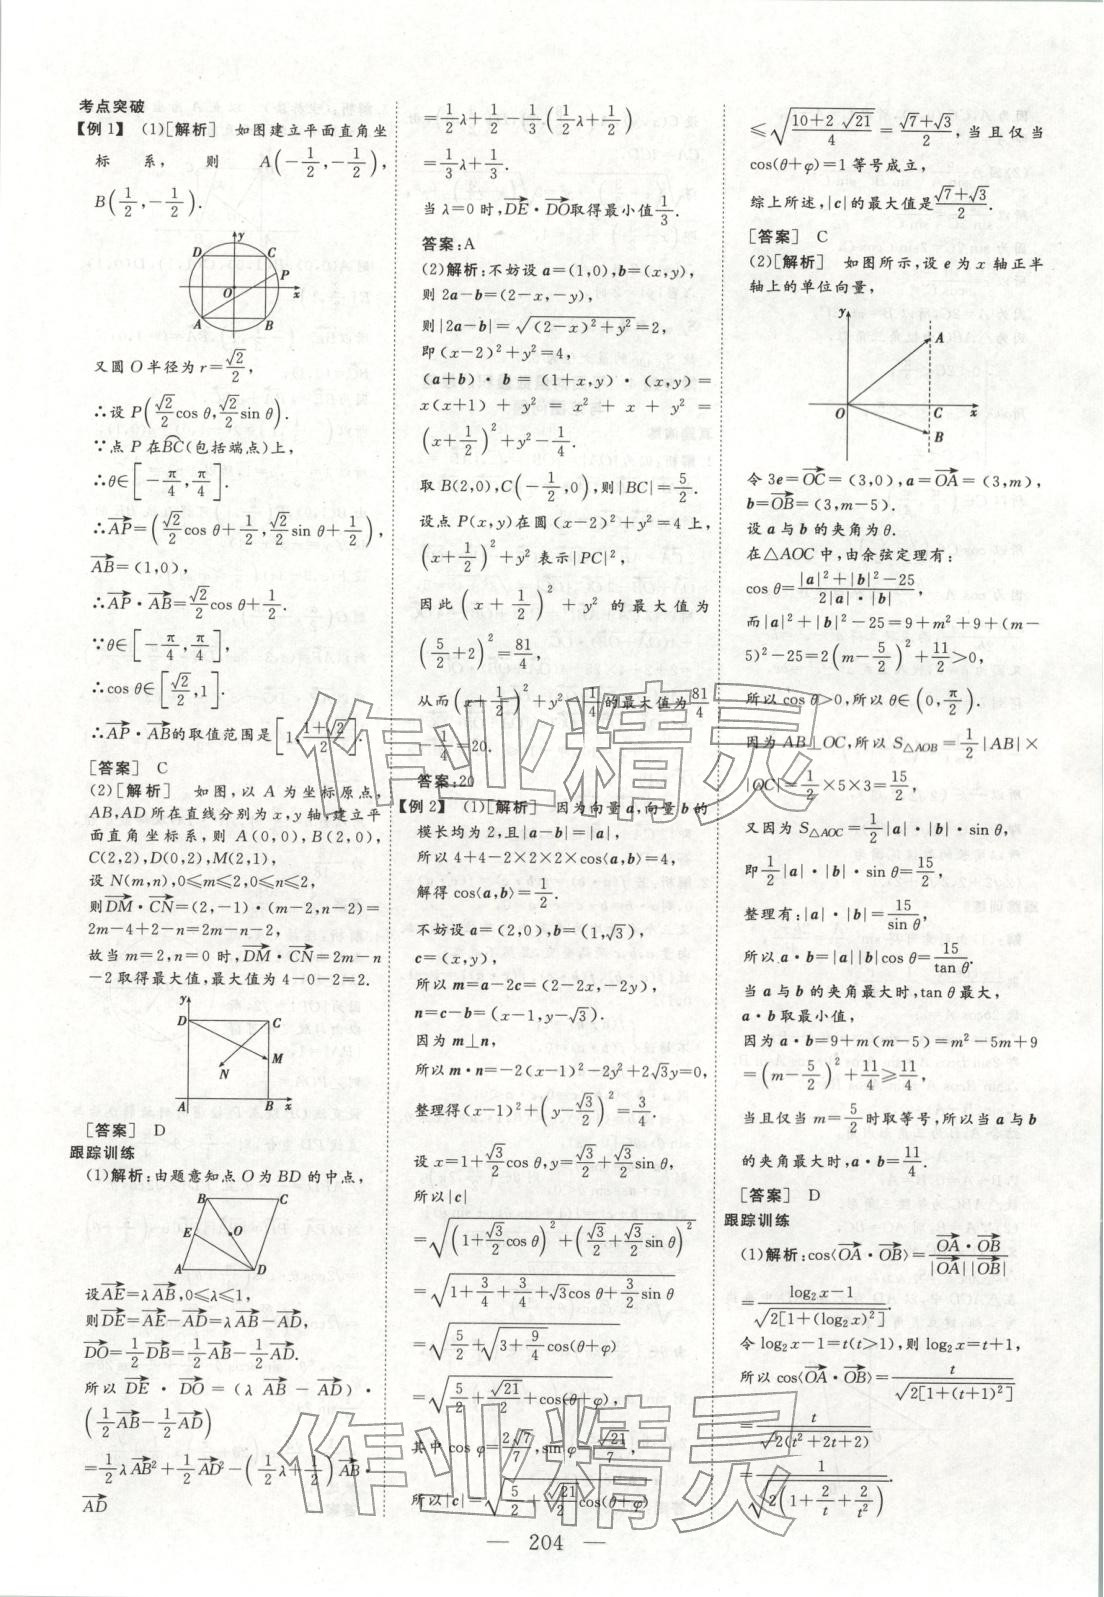 考点突破
【例1】 (1)[解析] 如图建立平面直角坐
标系,则 A(-1/2,-1/2),
B(1/2,-1/2).
y
D C
P
O x
A B
又圆O半径为r=√2/2,
∴设P(√2/2 cos θ,√2/2 sin θ).
∵点P在BC(包括端点)上,
∴θ∈[-π/4,π/4].
∴AP=(√2/2 cos θ+1/2,√2/2 sin θ+1/2),
AB=(1,0),
∴AP·AB=√2/2 cos θ+1/2.
∵θ∈[-π/4,π/4],
∴cos θ∈[√2/2,1].
∴AP·AB的取值范围是[1,(1+√2)/2].
[答案] C
(2)[解析] 如图,以A为坐标原点,
AB,AD所在直线分别为x,y轴,建立平
面直角坐标系,则A(0,0),B(2,0),
C(2,2),D(0,2),M(2,1),
设N(m,n),0≤m≤2,0≤n≤2,
则DM·CN=(2,-1)·(m-2,n-2)=
2m-4+2-n=2m-n-2,
故当m=2,n=0时,DM·CN=2m-n
-2取得最大值,最大值为4-0-2=2.
y
D C
M
N
A B x
[答案] D
跟踪训练
(1)解析:由题意知点O为BD的中点,
B C
E O
A D
设AE=λAB,0≤λ≤1,
则DE=AE-AD=λAB-AD,
DO=1/2 DB=1/2 AB-1/2 AD.
所以 DE · DO = (λ AB - AD) ·
(1/2 AB-1/2 AD)
=1/2 λAB²+1/2 AD²-(1/2 λ+1/2)AB·
AD
=1/2 λ+1/2-1/3(1/2 λ+1/2)
=1/3 λ+1/3.
当λ=0时,DE·DO取得最小值1/3.
答案:A
(2)解析:不妨设a=(1,0),b=(x,y),
则2a-b=(2-x,-y),
则|2a-b|=√((2-x)²+y²)=2,
即(x-2)²+y²=4,
(a+b)·b=(1+x,y)·(x,y)=
x(x+1) + y² = x² + x + y² =
(x+1/2)²+y²-1/4.
取B(2,0),C(-1/2,0),则|BC|=5/2.
设点P(x,y)在圆(x-2)²+y²=4上,
(x+1/2)²+y²表示|PC|²,
因此(x+1/2)²+y²的最大值为
(5/2+2)²=81/4,
从而(x+1/2)²+y²-1/4的最大值为81/4
-1/4=20.
答案:20
【例2】 (1)[解析] 因为向量a,向量b的
模长均为2,且|a-b|=|a|,
所以4+4-2×2×2×cos⟨a,b⟩=4,
解得cos⟨a,b⟩=1/2.
不妨设a=(2,0),b=(1,√3),
c=(x,y),
所以m=a-2c=(2-2x,-2y),
n=c-b=(x-1,y-√3).
因为m⊥n,
所以m·n=-2(x-1)²-2y²+2√3y=0,
整理得(x-1)²+(y-√3/2)²=3/4.
设x=1+√3/2 cos θ,y=√3/2+√3/2 sin θ,
所以|c|
=√((1+√3/2 cos θ)²+(√3/2+√3/2 sin θ)²)
=√(1+3/4+3/4+√3cos θ+3/2 sin θ)
=√(5/2+√(3+9/4)cos(θ+φ))
=√(5/2+√21/2+cos(θ+φ)
其中cos φ=2√7/7,sin φ=-√21/7,
所以|c|=√(5/2+√21/2 cos(θ+φ))
≤√((10+2√21)/4)=(√7+√3)/2,当且仅当
cos(θ+φ)=1等号成立,
综上所述,|c|的最大值是(√7+√3)/2.
[答案] C
(2)[解析] 如图所示,设e为x轴正半
轴上的单位向量,
y
A
O C x
B
令3e=OC=(3,0),a=OA=(3,m),
b=OB=(3,m-5).
设a与b的夹角为θ.
在△AOC中,由余弦定理有:
cos θ=(|a|²+|b|²-25)/(2|a|·|b|),
而|a|²+|b|²-25=9+m²+9+(m-
5)²-25=2(m-5/2)²+11/2>0,
所以cos θ>0,所以θ∈(0,π/2).
因为AB⊥OC,所以S△AOB=1/2|AB|×
|OC|=1/2×5×3=15/2,
又因为S△AOC=1/2|a|·|b|·sin θ,
即1/2|a|·|b|·sin θ=15/2,
整理有:|a|·|b|=15/sin θ,
所以a·b=|a||b|cos θ=15/tan θ.
当a与b的夹角最大时,tan θ最大,
a·b取最小值,
因为a·b=9+m(m-5)=m²-5m+9
=(m-5/2)²+11/4≥11/4,
当且仅当m=5/2时取等号,所以当a与b
的夹角最大时,a·b=11/4.
[答案] D
跟踪训练
(1)解析:cos⟨OA·OB⟩=OA·OB/(|OA||OB|)
=(log₂x-1)/√(2[1+(log₂x)²]).
令log₂x-1=t(t>1),则log₂x=t+1,
所以cos⟨OA·OB⟩=t/√(2[1+(t+1)²])
=t/√(2(t²+2t+2))
=1/√(2(1+2/t+2/t²)).
— 204 —
作业精灵
作业精灵